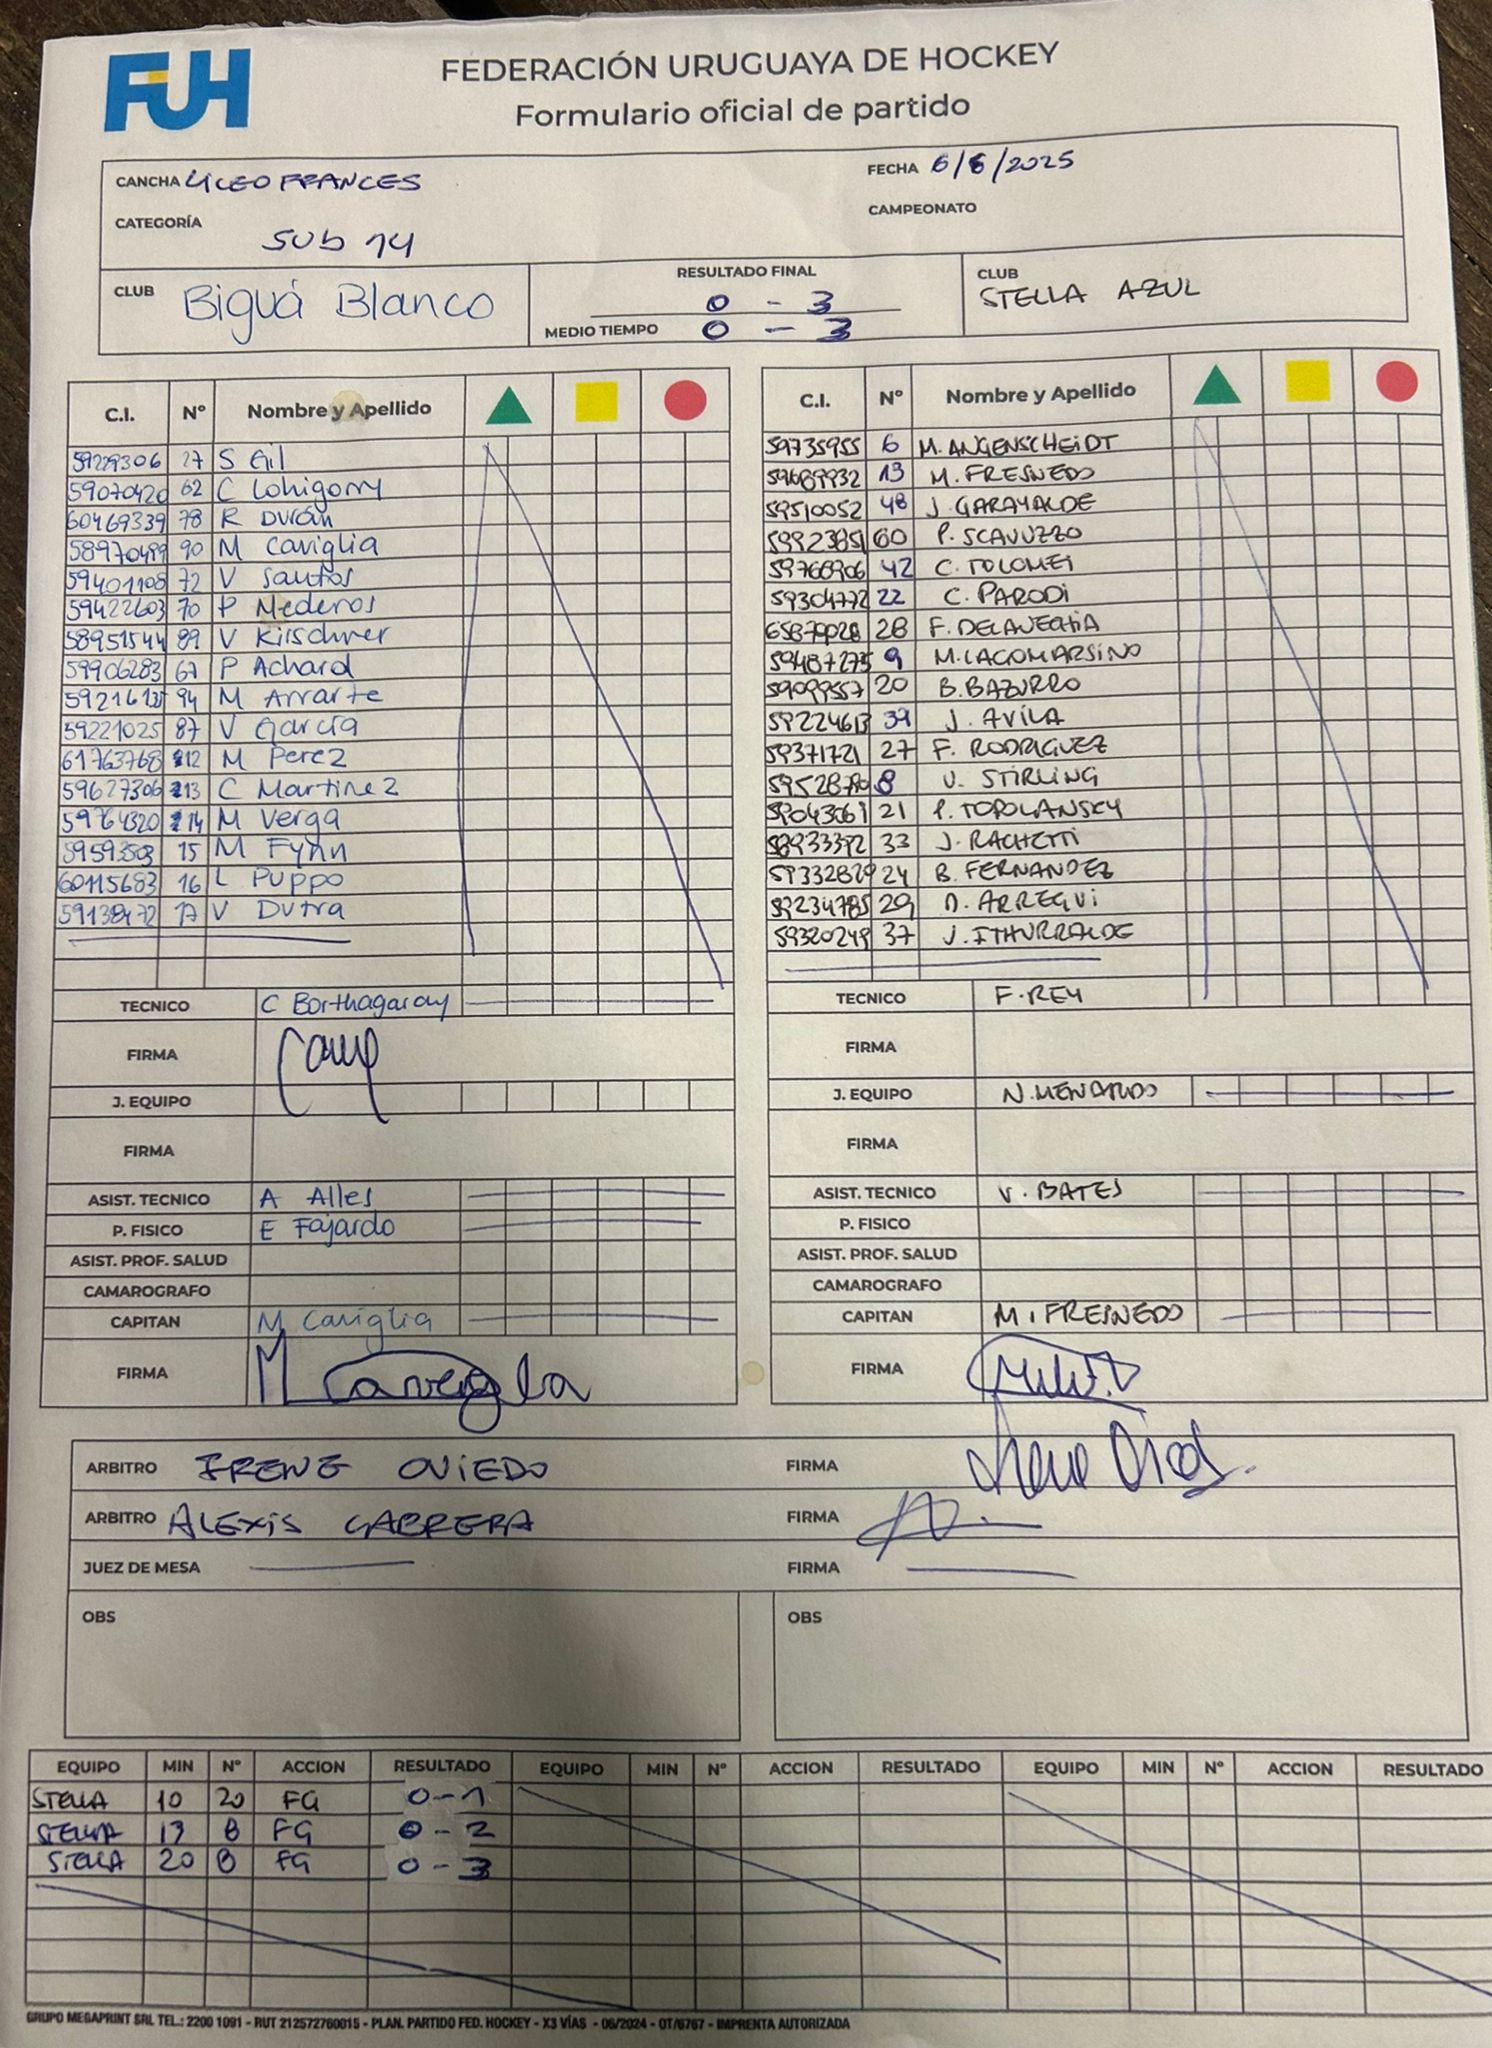 FUH
FEDERACIÓN URUGUAYA DE HOCKEY
Formulario oficial de partido
CANCHA LICEO FRANCES
FECHA 6/6/2025
CATEGORÍA SUB 14
CAMPEONATO
CLUB Biguá Blanco
RESULTADO FINAL 0 - 3
MEDIO TIEMPO 0 - 3
CLUB STELLA AZUL
C.I. Nº Nombre y Apellido
27 S Gil
59070420 62 C Lohigorry
60469339 78 R Durán
58970499 90 M Caviglia
59401108 72 V Santos
59422603 70 P Mederos
58951544 89 V Kirschner
59906283 67 P Achard
94 M Arrarte
59221025 87 V García
61763768 12 M Perez
59627306 13 C Martinez
59764320 14 M Verga
15 M Fynn
60115683 16 L Puppo
59138472 17 V Dutra
TECNICO C Borthagaray
FIRMA
J. EQUIPO
FIRMA
ASIST. TECNICO A Alles
P. FISICO E Fajardo
ASIST. PROF. SALUD
CAMAROGRAFO
CAPITAN M Caviglia
FIRMA M Caviglia
C.I. Nº Nombre y Apellido
59735955 6 M. ANGENSCHEIDT
13 M. FRESNEDO
59510052 48 J. GARAYALDE
60 P. SCAVUZZO
59766906 42 C. TOLOMEI
59304772 22 C. PARODI
28 F. DELAVECHIA
59487275 9 M. LAGOMARSINO
59099557 20 B. BAZURRO
59224613 39 J. AVILA
59371721 27 F. RODRIGUEZ
8 V. STIRLING
59043061 21 P. TOPOLANSKY
58933392 33 J. RACHETTI
59332829 24 B. FERNANDEZ
59234785 29 D. ARREGUI
59320249 37 J. ITHURRALDE
TECNICO F. REY
FIRMA
J. EQUIPO N. MENARDO
FIRMA
ASIST. TECNICO V. BATES
P. FISICO
ASIST. PROF. SALUD
CAMAROGRAFO
CAPITAN M. FRESNEDO
FIRMA
ARBITRO IRENE OVIEDO FIRMA
ARBITRO ALEXIS CABRERA FIRMA
JUEZ DE MESA FIRMA
OBS OBS
EQUIPO MIN Nº ACCION RESULTADO EQUIPO MIN Nº ACCION RESULTADO EQUIPO MIN Nº ACCION RESULTADO
STELLA 10 20 FG 0-1
STELLA 13 8 FG 0-2
STELLA 20 8 FG 0-3
GRUPO MEGAPRINT SRL TEL.: 2200 1091 - RUT 212572760015 - PLAN. PARTIDO FED. HOCKEY - X3 VÍAS - 06/2024 - OT/6767 - IMPRENTA AUTORIZADA